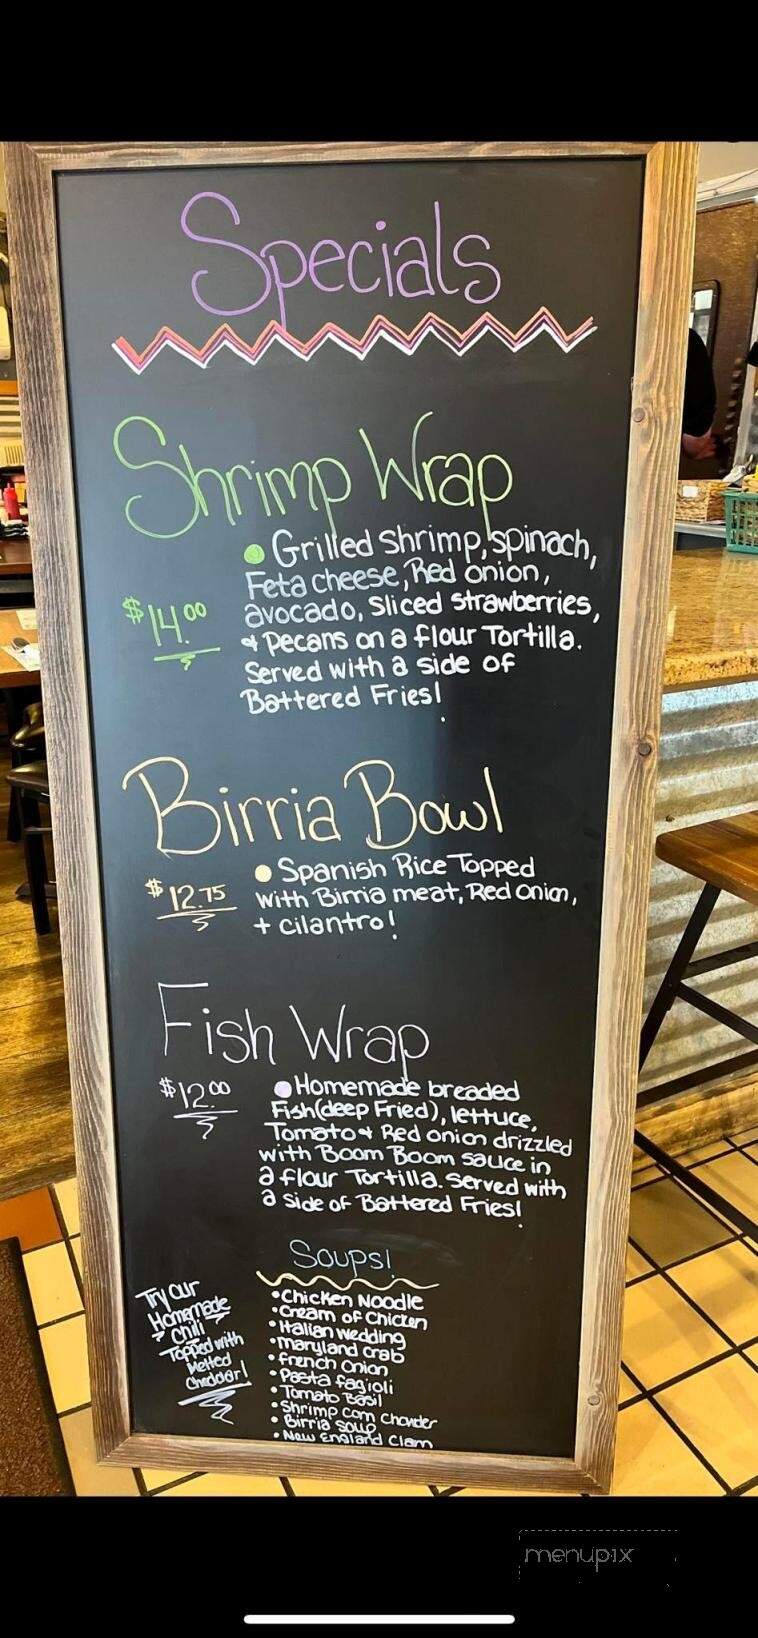 Specials
Shrimp Wrap
$14.00
• Grilled Shrimp, spinach,
Feta cheese, Red onion,
avocado, Sliced Strawberries,
& Pecans on a flour Tortilla.
Served with a side of
Battered Fries!
Birria Bowl
$12.75
• Spanish Rice Topped
with Birria meat, Red onion,
+ cilantro!
Fish Wrap
$12.00
• Homemade breaded
Fish (deep Fried), lettuce,
Tomato & Red onion drizzled
with Boom Boom sauce in
a flour Tortilla. served with
a side of Battered Fries!
Soups!
• Chicken Noodle
• Cream of Chicken
• Italian wedding
• Maryland crab
• French Onion
• Pasta fagioli
• Tomato Basil
• Shrimp corn Chowder
• Birria soup
• New England Clam
Try our
Homemade
Chili
Topped with
Melted
Cheddar!
menupix